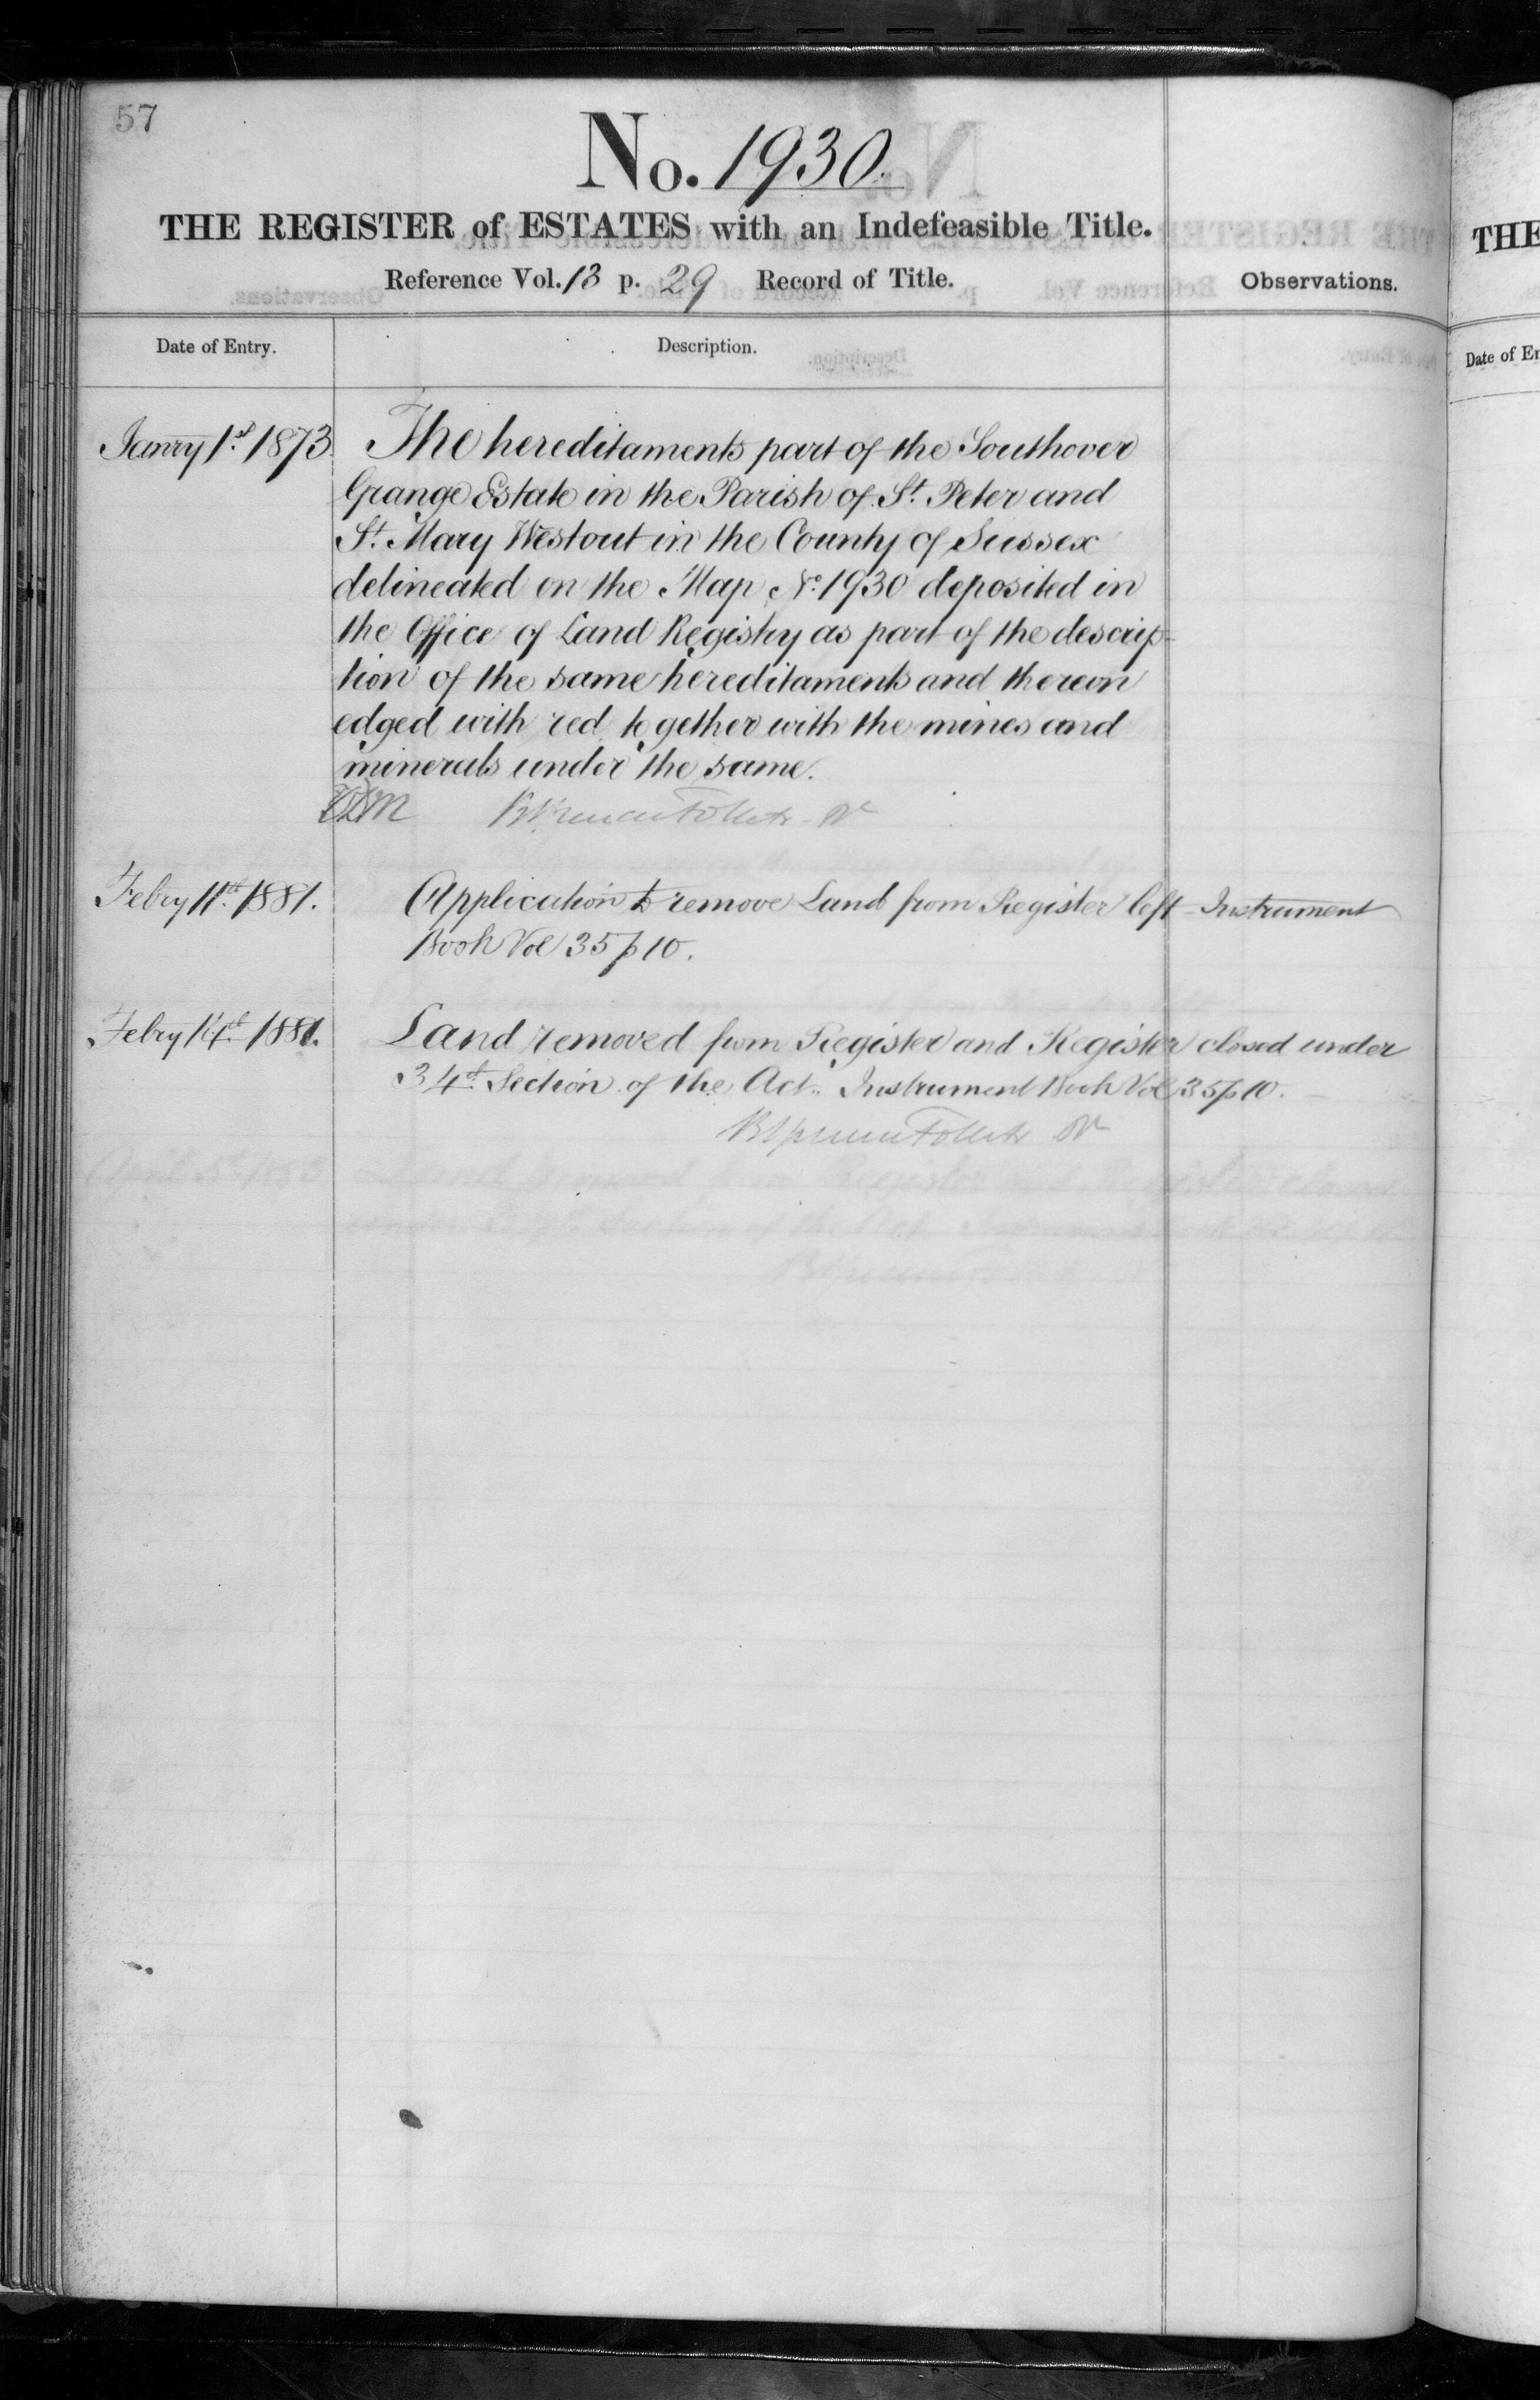 57
No. 1930.
THE REGISTER of ESTATES with an Indefeasible Title.
Reference Vol. 13 p. 29 Record of Title.
Observations.
Date of Entry.
Description.
Janry 1st 1873.
The hereditaments part of the Southover
Grange Estate in the Parish of St. Peter and
St. Mary Westout in the County of Sussex
delineated on the Map No. 1930 deposited in
the Office of Land Registry as part of the descrip-
tion of the same hereditaments and thereon
edged with red together with the mines and
minerals under the same.
Follett
Febry 11th 1881.
Application to remove Land from Register left Instrument
Book Vol 35 p 10.
Febry 14th 1881.
Land removed from Register and Register closed under
34th Section of the Act. Instrument Book Vol 35 p 10.
Follett
THE
Date of En